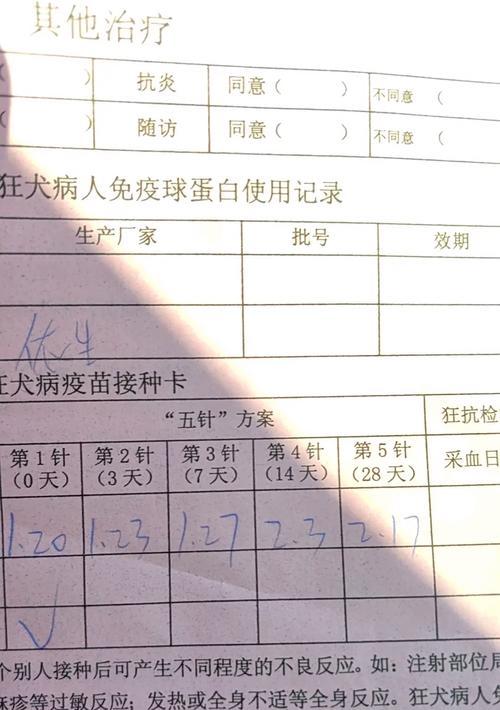 其他治疗
( ) 抗炎 同意( ) 不同意 (
( ) 随访 同意( ) 不同意 (
狂犬病人免疫球蛋白使用记录
生产厂家 批号 效期
依生
狂犬病疫苗接种卡
“五针”方案 狂抗检
第1针 第2针 第3针 第4针 第5针 采血日
(0天) (3天) (7天) (14天) (28天)
1.20 1.23 1.27 2.3 2.17
√
个别人接种后可产生不同程度的不良反应。如：注射部位局
麻疹等过敏反应；发热或全身不适等全身反应。狂犬病人免